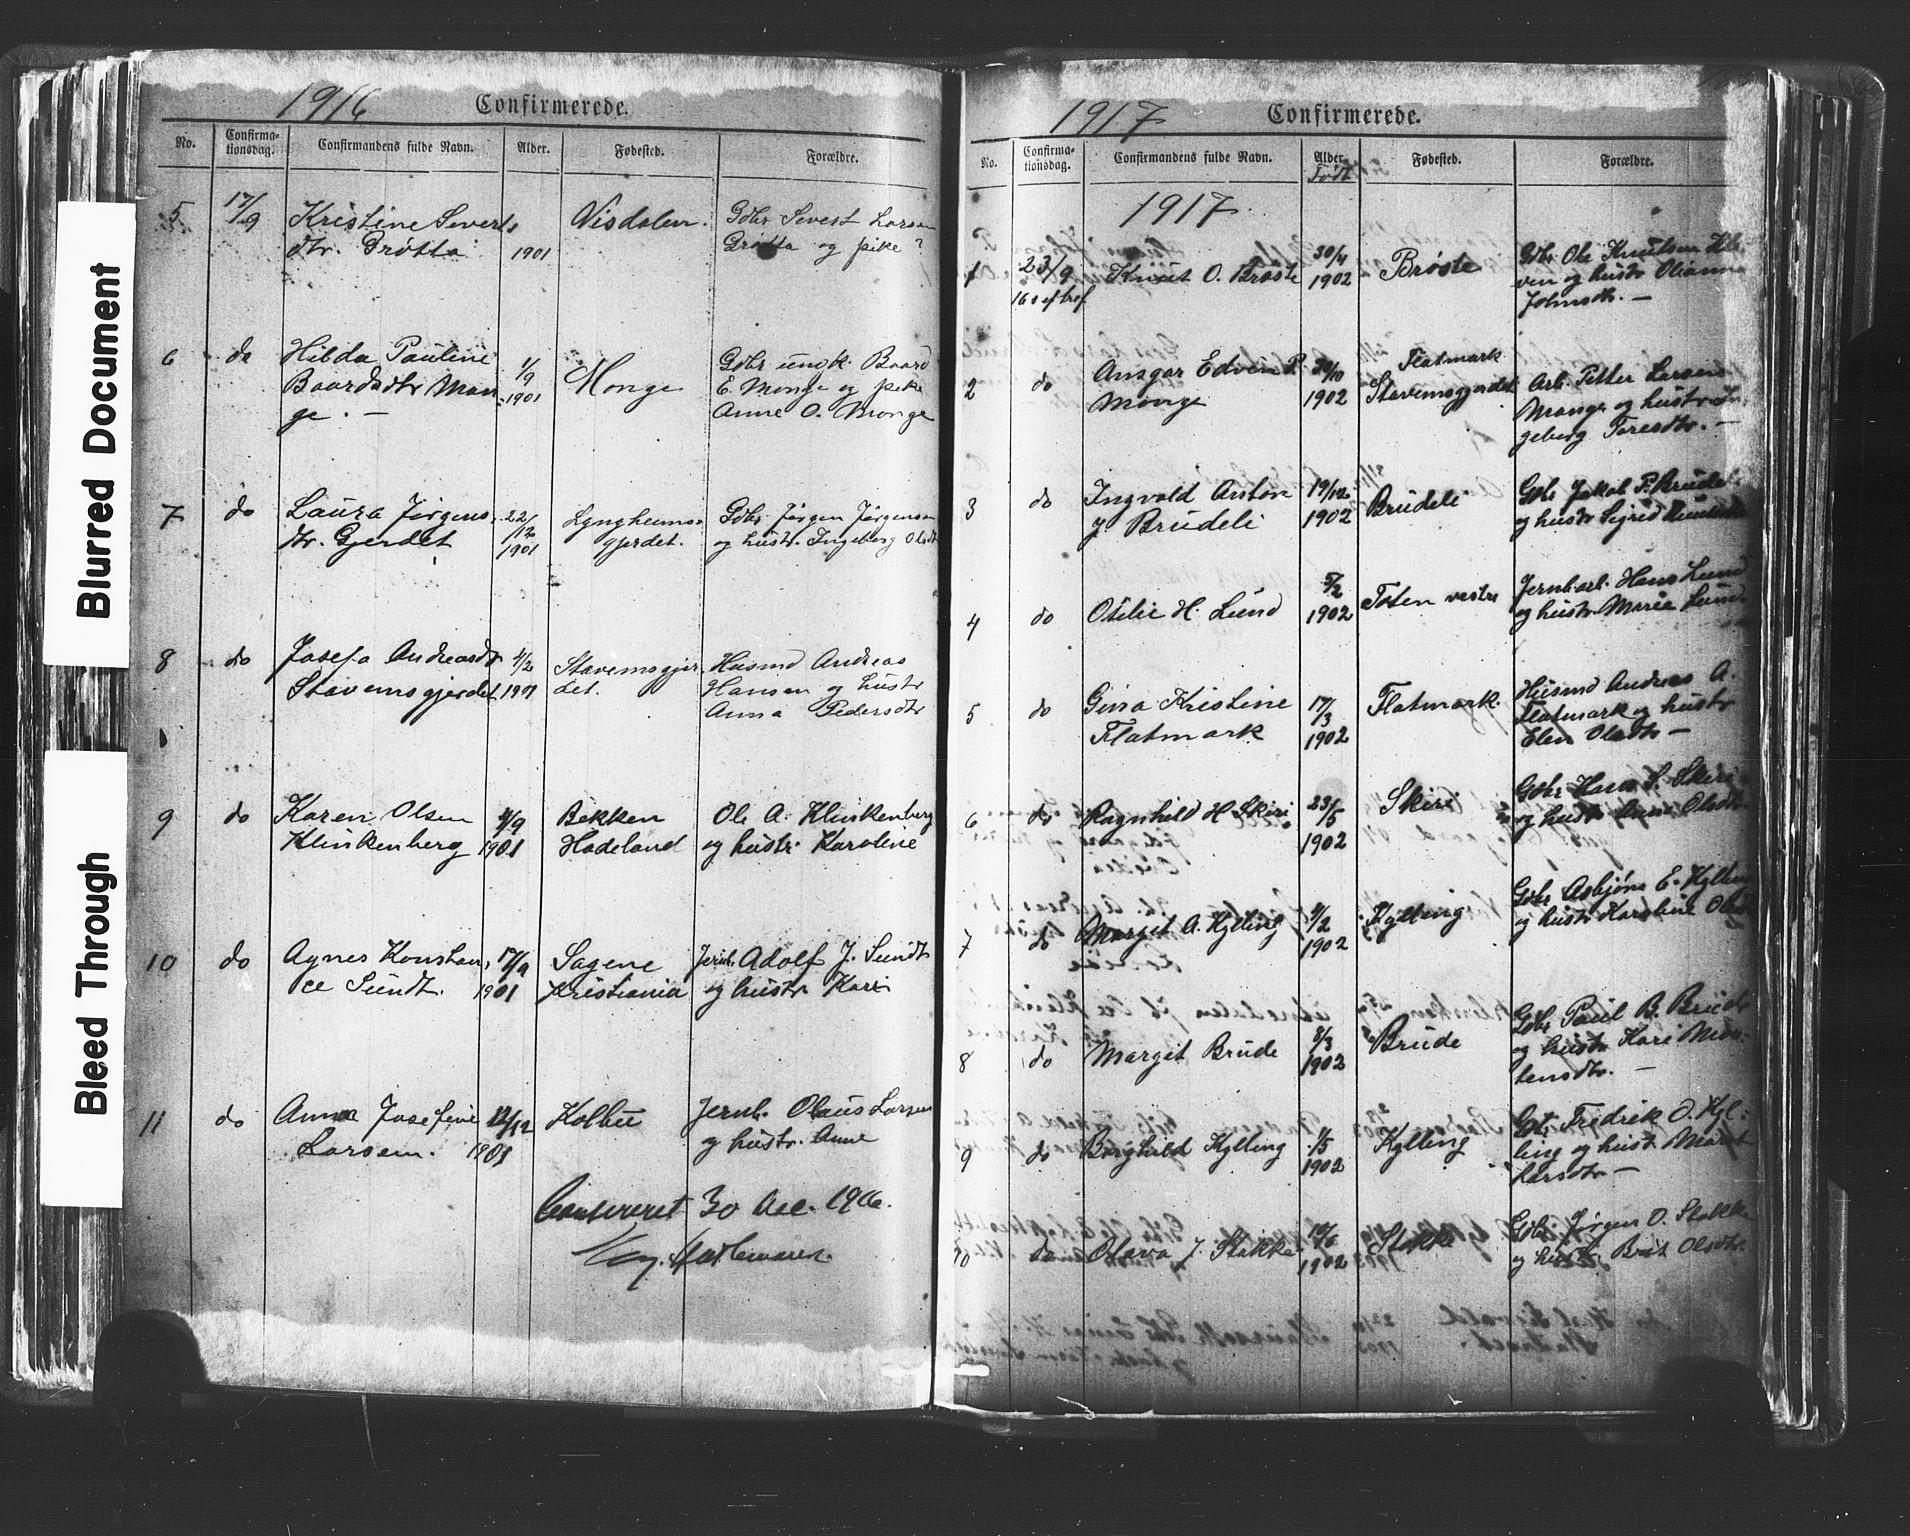 Blurred Document
Bleed Through
1916 Confirmerede.
No. Confirma-tionsdag. Confirmandens fulde Navn. Alder. Fødested. Forældre.
5 17/9 Kristine Severts Visdalen. Gdbr. Sevest Larsen
dtr. Grøtta 1901 Grøtta og pike ?
6 do Hilda Pauline 1/9 Monge Gdbr. Baard
Baardsdtr Mon- 1901 E. Monge og pike
ge. — Anne O. Monge
7 do Laura Jørgens- 22/12 Lyngheims- Gdbr. Jørgen Jørgensen
dtr. Gjerdet 1901 gjerdet. og hustr. Ingeborg Olsdtr
8 do Josefa Andreasdtr 4/2 Stavemsgjer- Husmd Andreas
Stavemsgjerdet 1901 det. Hansen og hustr
Anna Pedersdtr
9 do Karen Olsen /9 Bekken Ole A. Klinkenberg
Klinkenberg 1901 Hadeland og hustr. Karoline
10 do Agnes Konstan- 17/9 Sagene Jernb. Adolf J. Sundt
ce Sundt. 1901 Kristiania og hustr Kari
11 do Anna Josefine 12/12 Kolbu Jernb. Olaus Larsen
Larsen. 1901 og hustr. Anne
30 Dec. 1916.
1917 Confirmerede.
No. Confirma-tionsdag. Confirmandens fulde Navn. Alder. Født Fødested. Forældre.
1917
1 23/9 Knut O. Brøste 30/4 1902 Brøste Gdbr. Ole Knutsen Kle-
16 s ef tref ven og hustr Olianna
Johnsdtr. —
2 do Ansgar Edvin P. 30/10 Flatmark
Monge 1902 Stavemsgjerdet Arb. Petter Larsen
Monge og hustr In-
geborg Toresdtr. —
3 do Ingvald Anton 19/12 Brudeli Gdbr Jakob P. Brudeli
J. Brudeli 1902 og hustr Sigrid
4 do Otilie H. Lund 5/2 1902 Toten vestre Jernb.arb. Hans Lund
og hustr. Marie Lund.
5 do Gina Kristine 17/3 Flatmark. Husmd Andreas A.
Flatmark 1902 Flatmark og hustr
Elen Olsdtr —
6 do Ragnhild H. Skiri 23/5 1902 Skiri Gdbr Hans S. Skiri
og hustr Olsdtr
7 do Margit A. Kylling 4/2 1902 Kylling Gdbr Asbjørn E. Kylling
og hustr Karoline
8 do Margit Brude 8/3 1902 Brude Gdbr Paul B. Brude
og hustr Kari Mor-
tensdtr. —
9 do Borghild Kylling 1/5 1902 Kylling Gdbr Fredrik O. Kyl-
ling og hustr. Marit
Larsdtr —
10 do Olava J. Stokke 10/6 1902 Stokke Gdbr. Jørgen O. Stokke
og hustr. Brit Olsdtr